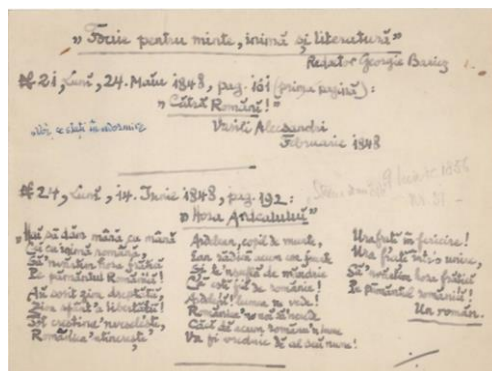 "Foaie pentru minte, inimă și literatură"
Redactor George Bariez
№ 21, Luni, 24. Maiu 1848, pag. 161 (prima pagină):
"Cătră Români!"
Vasili Alecsandri
Februarie 1848
№ 24, Luni, 14. Iunie 1848, pag. 192:
"Hora Ardealului"
"Hai să dăm mână cu mână
Cei cu inimă română,
Să 'nvârtim hora frăției
Pe pământul României!
sfântă a libertății!
România 'ntinerește
Ardelean, copil de munte,
Ian ridică acum cea frunte
Și te de mândrie
Că ești fiu de românie!
Ardealul! lumea ne vede!
România
Câtă de acum, română'n lume
Va fi vrednic de al său nume!
Ura frați în fericire!
Ura frați într'o unire,
Să 'nvârtim hora frăției
Pe pământul româniii!"
Un român.